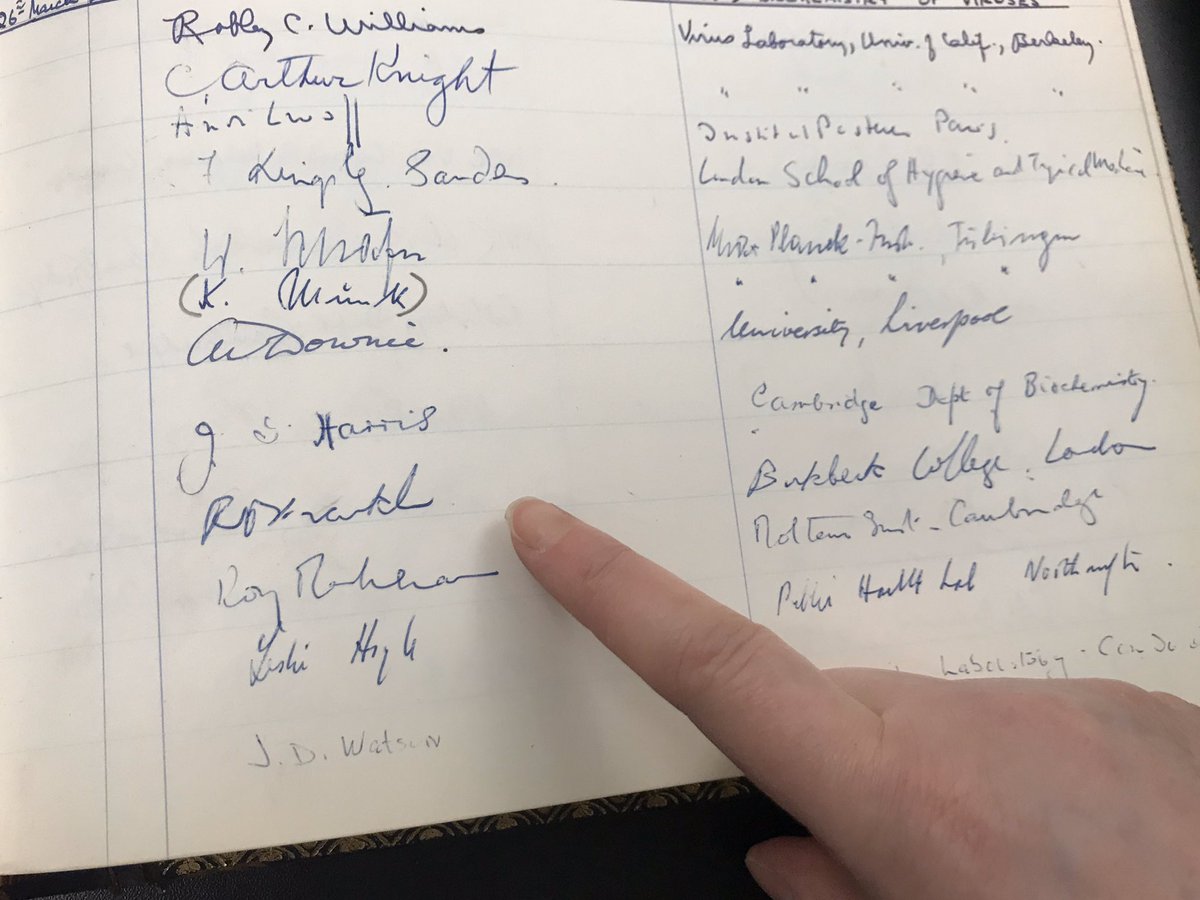 26th March
BIOCHEMISTRY OF VIRUSES
Robley C. Williams Virus Laboratory, Univ. of Calif., Berkeley.
C. Arthur Knight " " " " "
Lwoff Institut Pasteur Paris.
F Kingsley Sanders. London School of Hygiene and Tropical Medicine
Max Planck-Inst., Tübingen
(K. Munk) " " " "
AW Downie. University, Liverpool
J I Harris Cambridge Dept of Biochemistry.
Birkbeck College, London
Roy Markham Molteno Inst - Cambridge
Leslie Hoyle Public Health Lab Northampton.
J. D. Watson Laboratory -